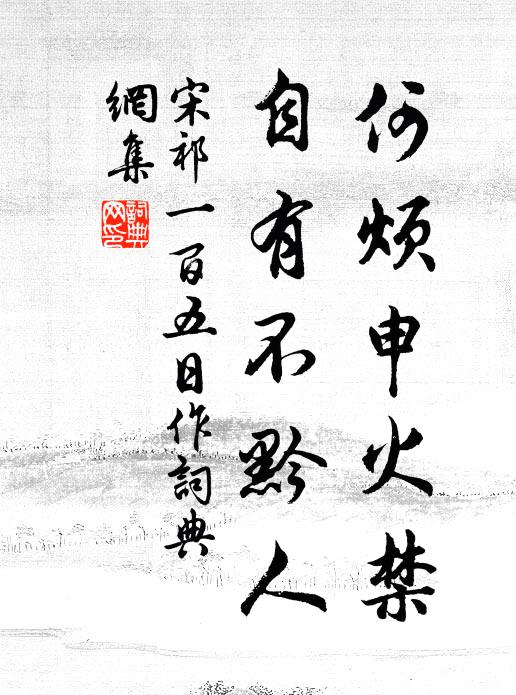 何煩申火禁
自有不黔人
宋祁一百五日作詞典
網集
詞典網印